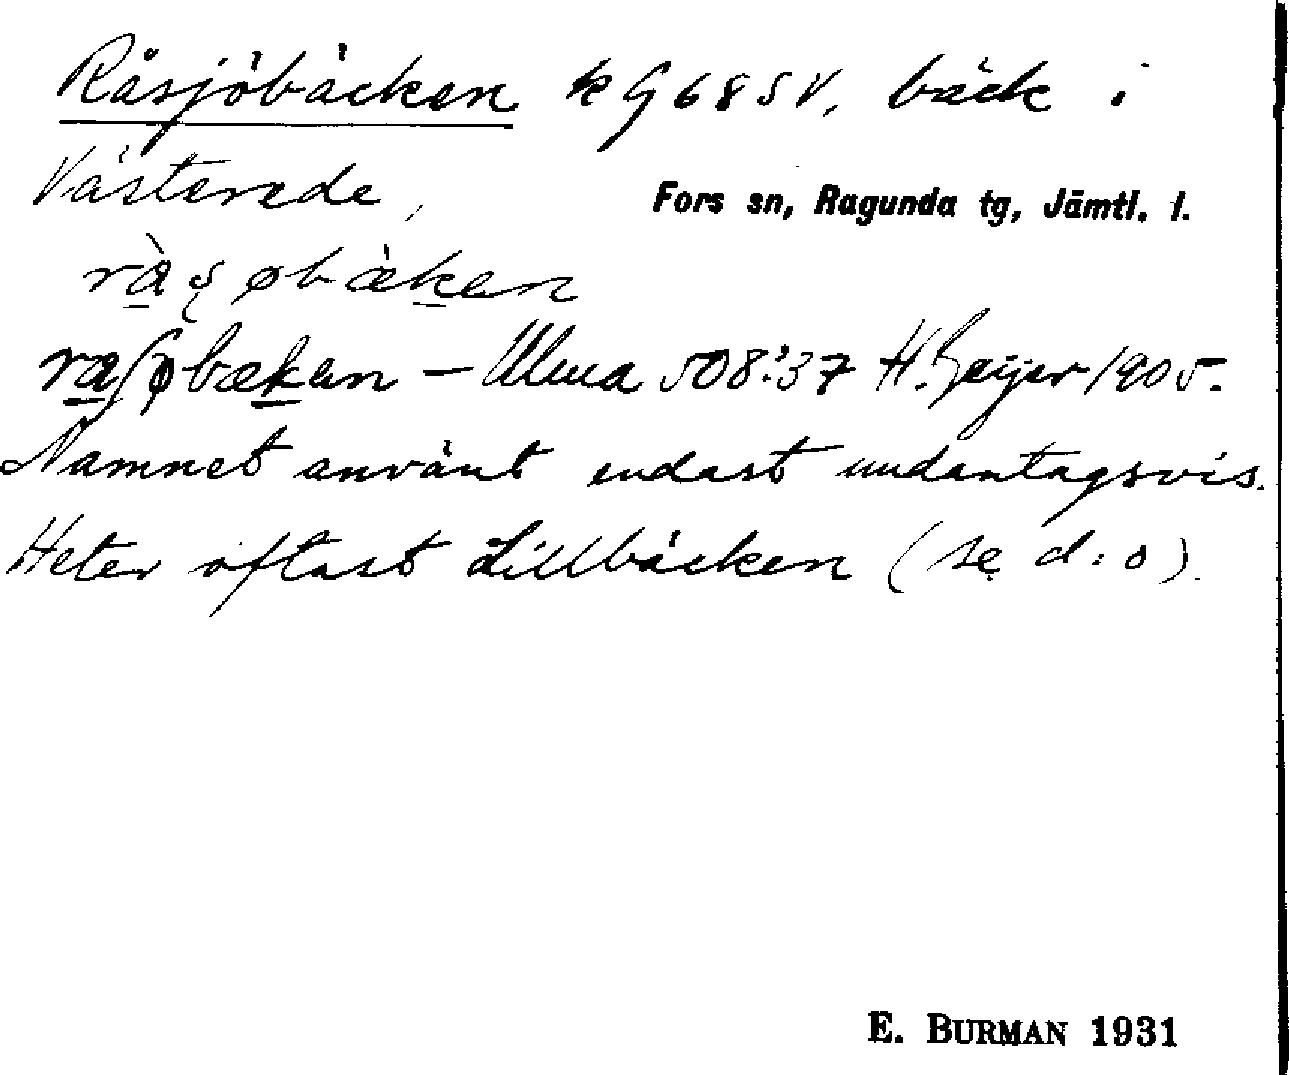 Råsjöbäcken k G 68 SV, bäck i
Västerede, Fors sn, Ragunda tg, Jämtl. l.
ràʂøbæken
raʃøbækan – Ulma 508:37 H. Geijer 1905.
Namnet använt endast undantagsvis.
Heter oftast Lillbäcken (se d:o).
E. BURMAN 1931